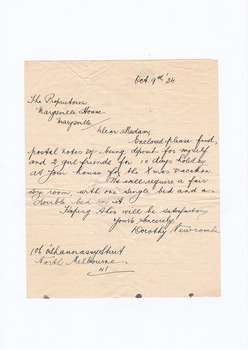 Oct. 9th 36
The Proprietress
Marysville House
Marysville
Dear Madam,
Enclosed please find
postal notes 30/- being deposit for myself
and 2 girl friends for 10 days holiday
at your house for the Xmas vacation.
We will require a fair
room with one single bed and a
double bed in it.
Hoping this will be satisfactory
Yours Sincerely
Dorothy Newcombe
O'Shannassy Street
North Melbourne
N1